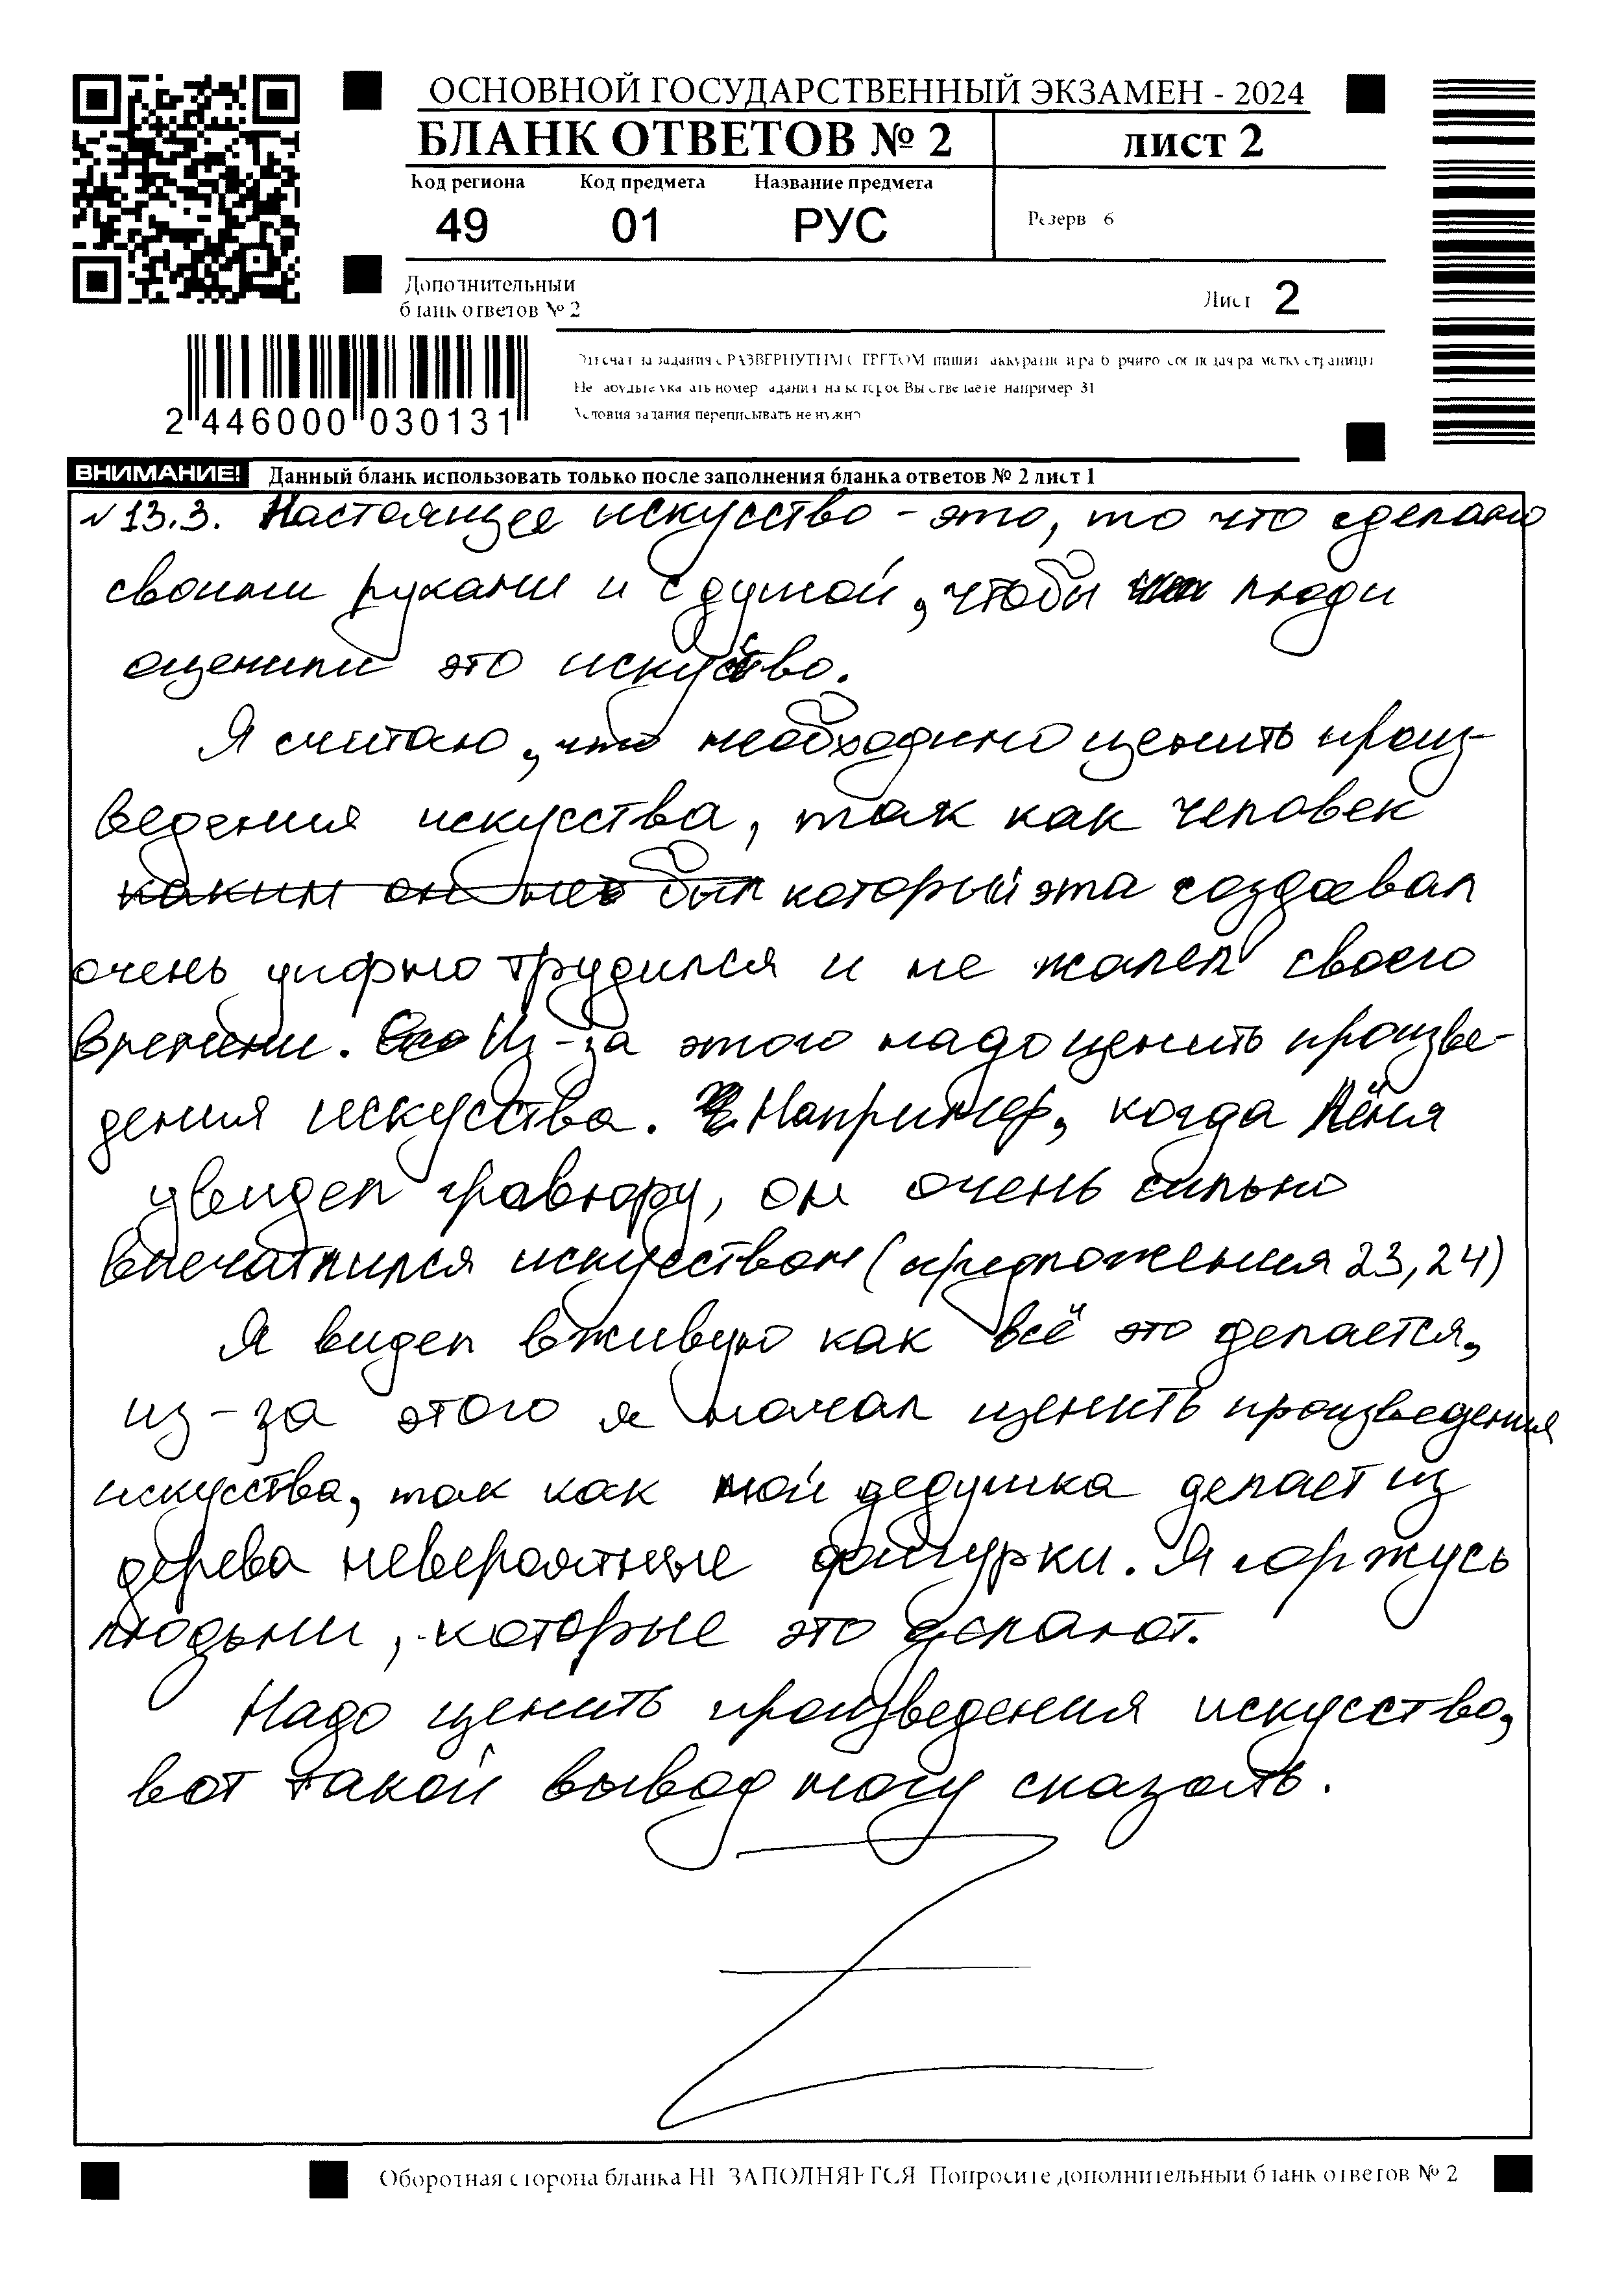 ОСНОВНОЙ ГОСУДАРСТВЕННЫЙ ЭКЗАМЕН - 2024
БЛАНК ОТВЕТОВ № 2
лист 2
Код региона Код предмета Название предмета
49 01 РУС
Резерв 6
Дополнительный
бланк ответов № 2
Лист 2
2 446000 030131
Отвечая на задания с РАЗВЕРНУТЫМ ОТВЕТОМ пишите аккуратно и разборчиво соблюдая разметку страницы
Не забудьте указать номер задания на которое Вы отвечаете например 31
Условия задания переписывать не нужно
ВНИМАНИЕ! Данный бланк использовать только после заполнения бланка ответов № 2 лист 1
№ 13.3. Настоящее искусство - это, то что сделано
своими руками и с думой, чтобы люди
оценили это искуство.
Я считаю, что необходимо ценить произ-
ведения искусства, так как человек
каким он не был который эта создовал
очень упорно трудился и не жалел своего
времени. Из-за этого надо ценить произве-
дения искусства. Например, когда Лёня
увидел гравюру, он очень сильно
впечатлился искусством (предложения 23, 24)
Я видел вживую как всё это делается,
из-за этого я начал ценить произведения
искусства, так как мой дедушка делает из
дерева невероятные фигурки. Я горжусь
людьми, которые это делают.
Надо ценить произведения искусство,
вот такой вывод могу сказать.
Оборотная сторона бланка НЕ ЗАПОЛНЯЕТСЯ Попросите дополнительный бланк ответов № 2